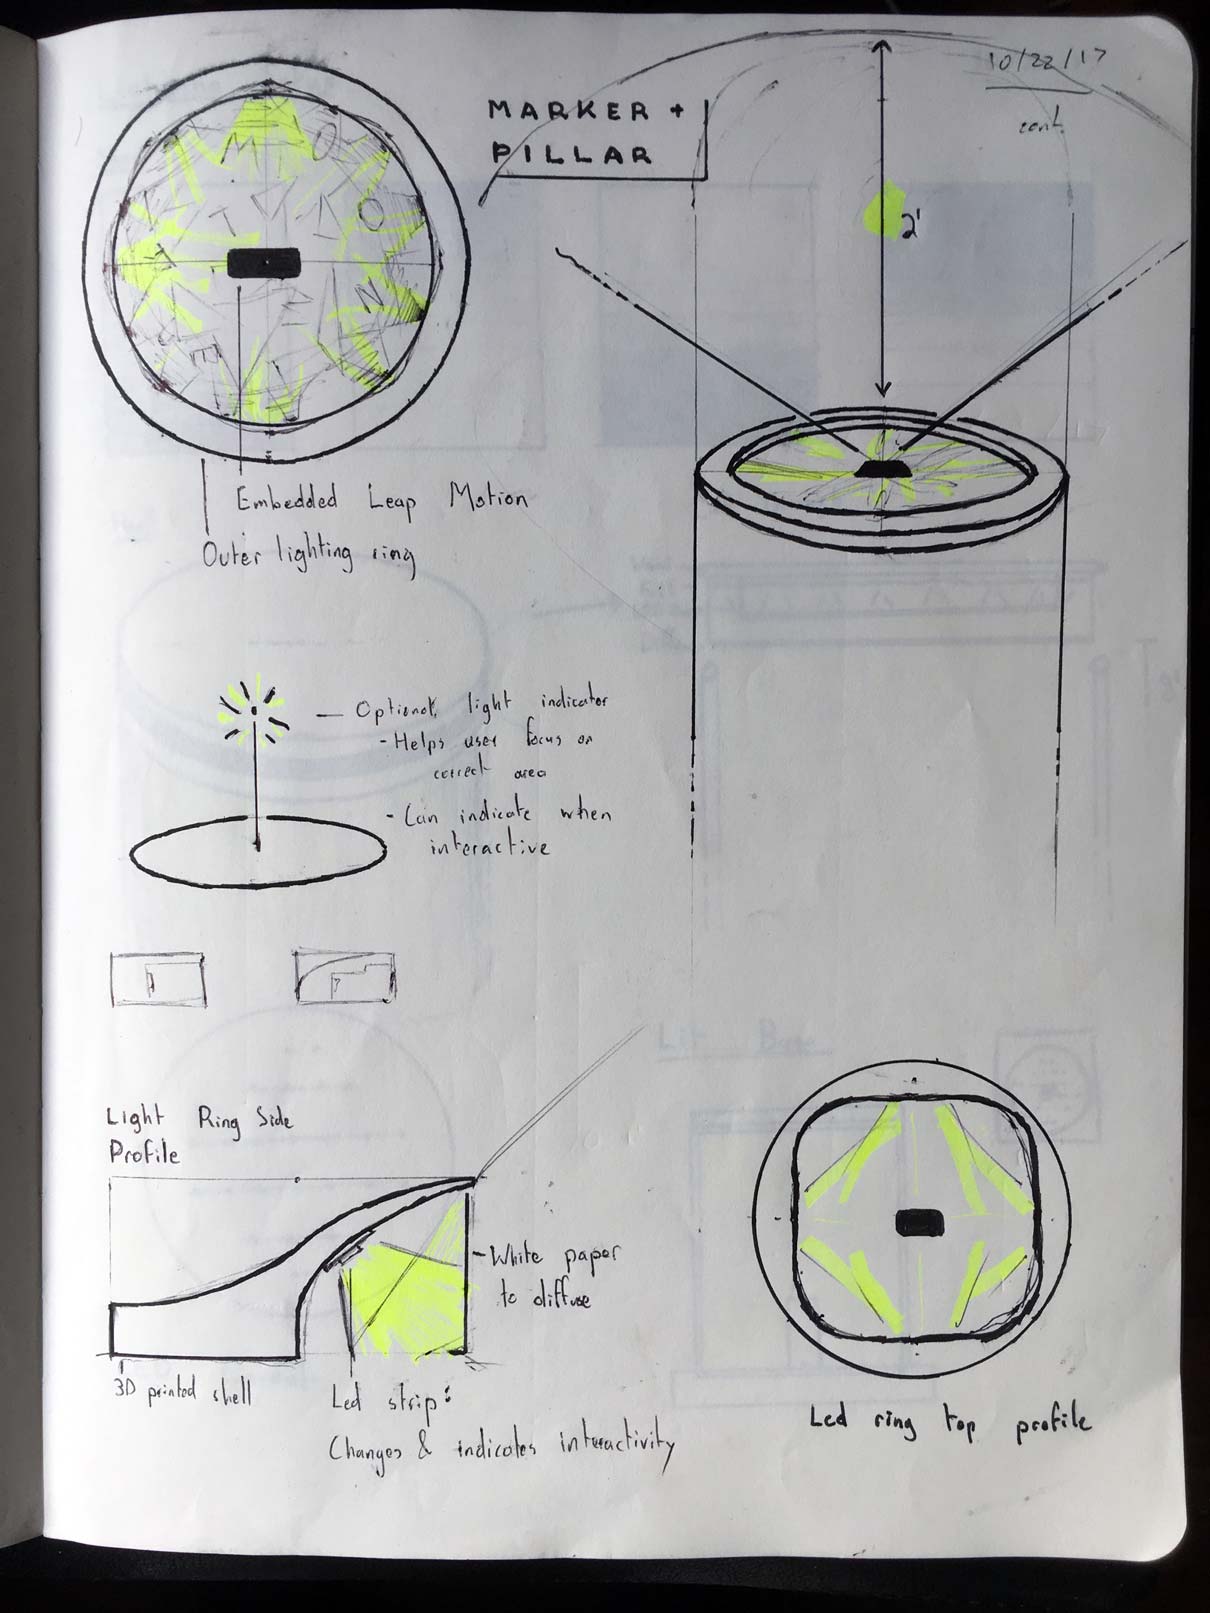 10/22/17
cont.
MARKER +
PILLAR
2'
Embedded Leap Motion
Outer lighting ring
Optional light indicator
- Helps user focus on
correct area
- Can indicate when
interactive
Light Ring Side
Profile
White paper
to diffuse
3D printed shell
Led strip:
Changes & indicates interactivity
Led ring top profile
Lit Base